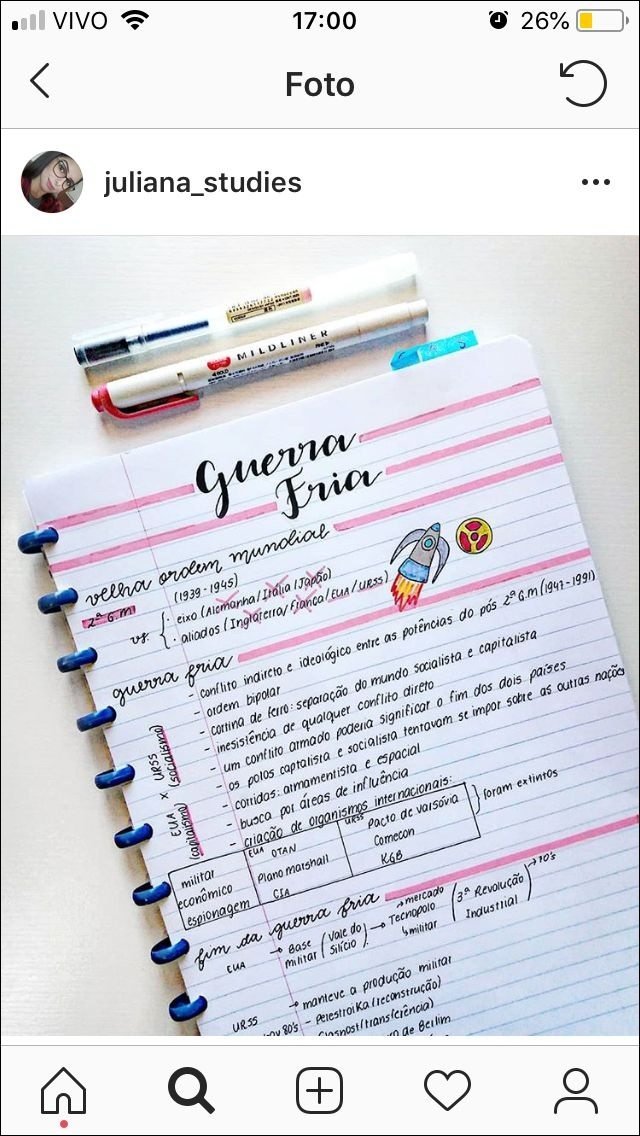 VIVO 17:00 26%
Foto
juliana_studies
MILDLINER
Guerra
Fria
velha ordem mundial
2ª G.M (1939-1945)
vs. eixo (Alemanha/Itália/Japão)
aliados (Inglaterra/França/EUA/URSS)
guerra fria
- conflito indireto e ideológico entre as potências do pós 2ª G.M (1947-1991)
- ordem bipolar
- cortina de ferro: separação do mundo socialista e capitalista
- inesistência de qualquer conflito direto
- um conflito armado poderia significar o fim dos dois países
- os polos captalista e socialista tentavam se impor sobre as outras nações
- corridas: armamentista e espacial
- busca por áreas de influência
- criação de organismos internacionais:
EUA x URSS
(capitalismo) (socialismo)
EUA URSS
militar OTAN Pacto de varsóvia } foram extintos
econômico Plano marshall Comecon
espionagem CIA KGB
fim da guerra fria
EUA → Base militar (Vale do Silício) → Tecnopolo → mercado
↳ militar
(3ª Revolução Industrial) → 70's
URSS → manteve a produção militar
80's - Pelestroika (reconstrução)
- Glasnost (transferência)
de Berlim